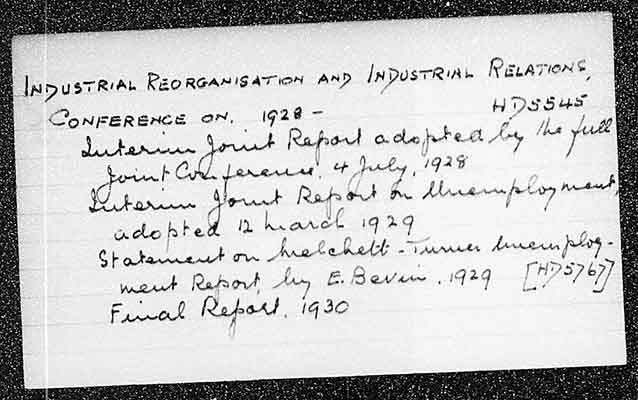 INDUSTRIAL REORGANISATION AND INDUSTRIAL RELATIONS,
CONFERENCE ON. 1928 - HD5545
Interim Joint Report adopted by the full
Joint Conference, 4 July, 1928
Interim Joint Report on Unemployment,
adopted 12 March 1929
Statement on Melchett-Turner Unemploy-
ment Report, by E. Bevin, 1929 [HD5767]
Final Report, 1930